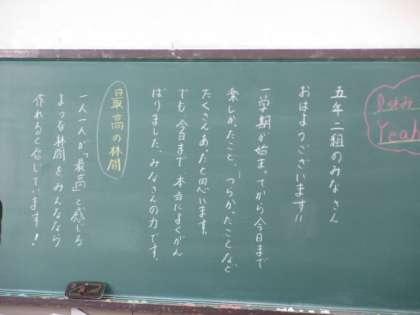 夏休み
Yeah
五年二組のみなさん
おはようございます!!
一学期が始まってから今日まで
楽しかったこと、つらかったことなど
たくさんあったと思います。
でも、今日まで本当によくがん
ばりました。みなさんの力です。
最高の林間
一人一人が"最高"と感じる
ような林間をみんななら
作れると信じています!